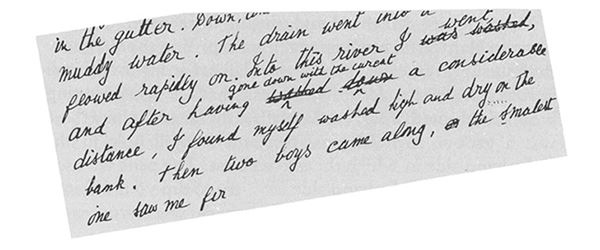 in the gutter. Down,
muddy water. The drain went into a
flowed rapidly on. Into this river I was washed, went,
and after having washed down gone down with the curent a considerable
distance, I found myself washed high and dry on the
bank. Then two boys came along, the smalest
one saw me fir